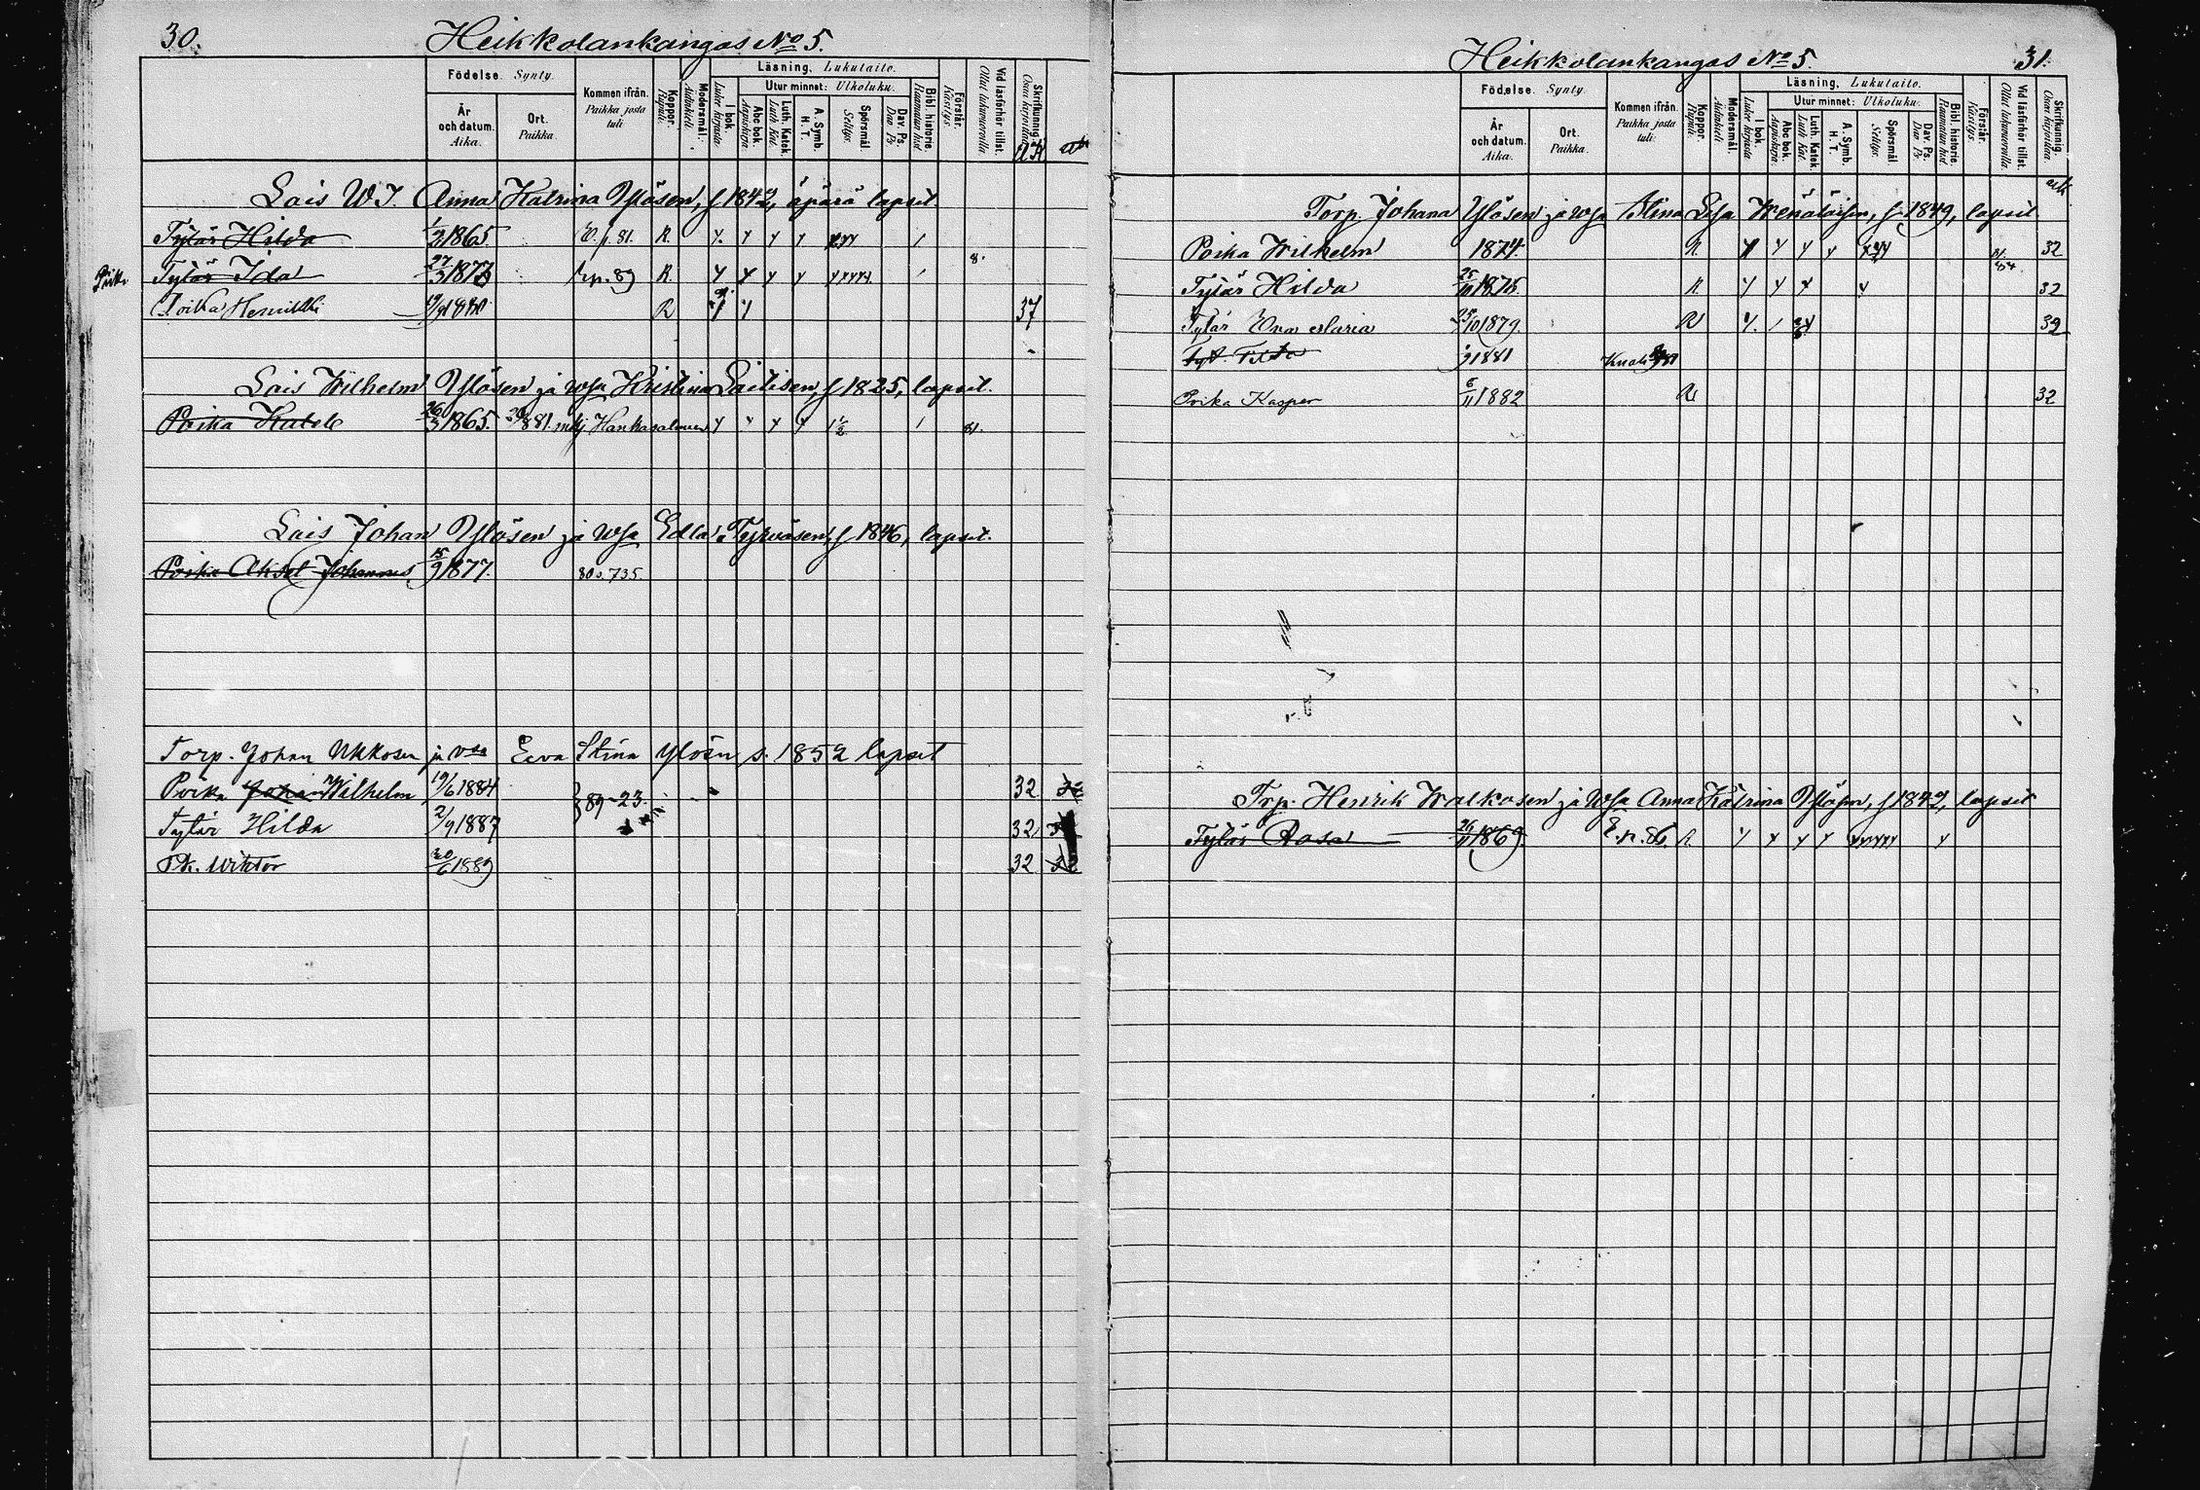 30.
Heikkolankangas No 5.
Födelse. Synty.
År och datum. Aika.
Ort. Paikka.
Kommen ifrån. Paikka josta tuli
Koppor. Rupuli.
Modersmål. Äidinkieli
Läsning, Lukutaito.
I bok. Lukee kirjasta
Utur minnet: Ulkoluku.
Abc bok. Aapiskirja
Luth. Katek. Luth Kat.
A. Symb. H. T.
Spörsmål Selitys.
Dav. Ps. Dav Ps
Bibl. historie. Raamatun hist
Förstår. Käsitys.
Vid läsförhör tillst. Ollut lukuvuorolla
Skrifkunnig Osaa kirjoittaa
Lais W. J. Anna Katrina Ylösen, f 1842, äpärä lapset
Tytär Hilda 1865. R.
Tytär Ida 27/3 1873 rp. 89 R.
Poika Henrikki R 37
Lais Wilhelm Ylösen ja wso Kristina Laitisen, f 1825, lapset.
Poika Kalle 26/3 1865. Hankasalmen 81.
Lais Johan Ylösen ja wso Edla Tyrväsen, f 1846, lapset.
Poika Aksel Johannes 15/9 1877. 80 s. 735.
Torp. Johan Ukkosen ja vso Eeva Stina Ylösen s. 1852 lapset
Poika Johan Wilhelm 19/6 1884 89-23. 32
Tytär Hilda 2/9 1887 32
Pk. Wiktor 20/6 1889 32
Heikkolankangas No 5.
31.
Födelse. Synty.
År och datum. Aika.
Ort. Paikka.
Kommen ifrån. Paikka josta tuli.
Koppor. Rupuli.
Modersmål. Äidinkieli
Läsning, Lukutaito.
I bok. Lukee kirjasta
Utur minnet: Ulkoluku.
Abc bok. Aapiskirja
Luth. Katek. Luth Kat.
A. Symb. H. T.
Spörsmål Selitys.
Dav. Ps. Dav Ps
Bibl. historie. Raamatun hist.
Förstår. Käsitys.
Vid läsförhör tillst. Ollut lukuvuorolla
Skrifkunnig. Osaa kirjoittaa.
Torp. Johan Ylösen ja wso Stina Lisa Wenäläisen, f 1849, lapset
Poika Wilhelm 1874. R. 32
Tytär Hilda 1876. R 32
Tytär Eva Maria 25/10 1879. R 32
Tyt. Tilda 1881 Kuoli
Poika Kasper 6/11 1882 R 32
Trp. Henrik Walkosen ja wso Anna Katrina Ylösen, f 1842, lapset
Tytär Rosa 26/11 1869. R.